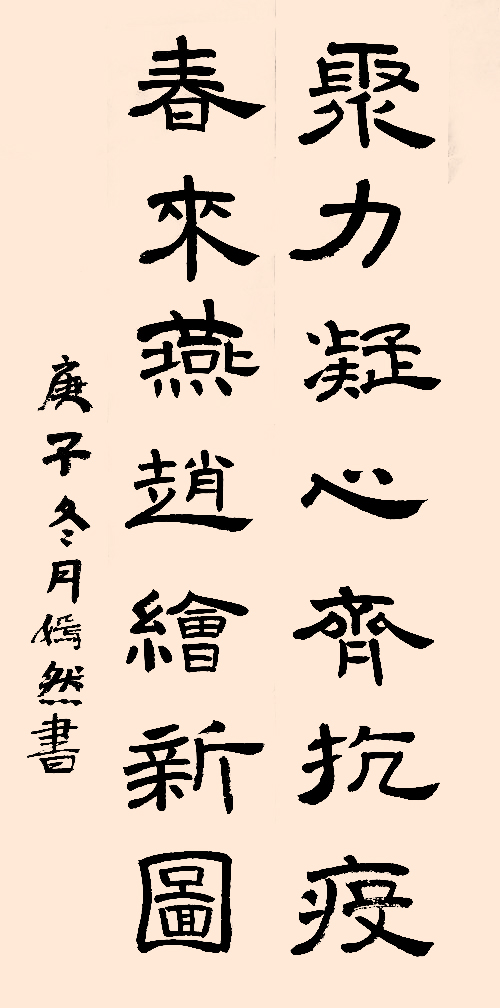 聚力凝心齊抗疫
春來燕趙繪新圖
庚子冬月嫣然書